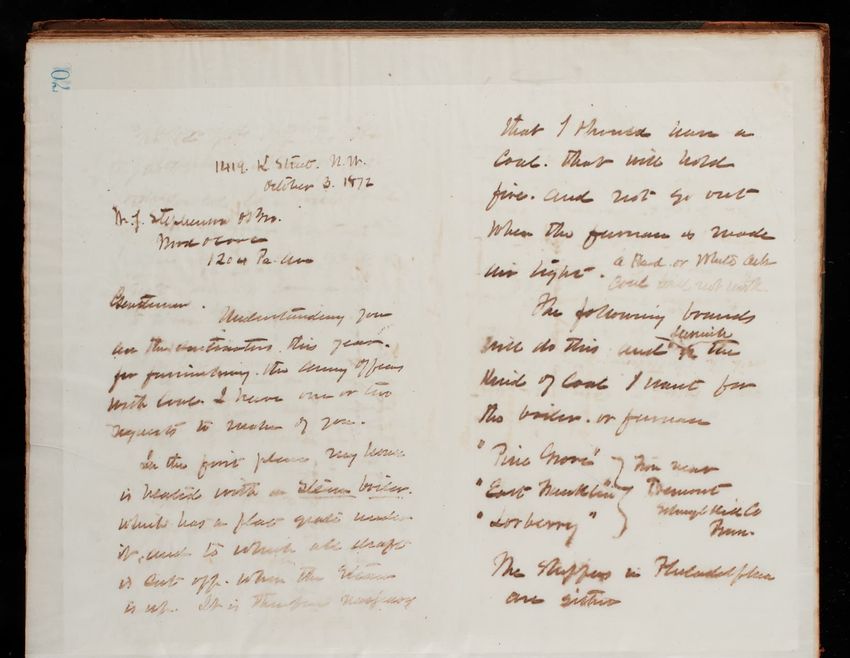 702
1419. K Street. N.W.
October 3. 1872
W. J. Stephenson & Bro.
Wood & Coal
1204 Pa. Ave
Gentlemen.
Understanding you
are the contractors this year.
for furnishing the army officers
with coal. I have one or two
requests to make of you.
In the first place my house
is heated with a steam boiler.
which has a flat grate under
it, and to which all draft
is cut off. when the steam
is up. It is therefore necessary
that I should have a
Coal. that will hold
fire. and not go out
when the furnace is made
air tight. a Red. or White ash
coal will not work
The following brands
will do this and is the
kind of Coal I want for
the boiler. or furnace
"Pine Grove"
"East Franklin"
"Lorberry"
from near
Tremont
Schuylkill Co
Penn.
The Shippers in Philadelphia
are